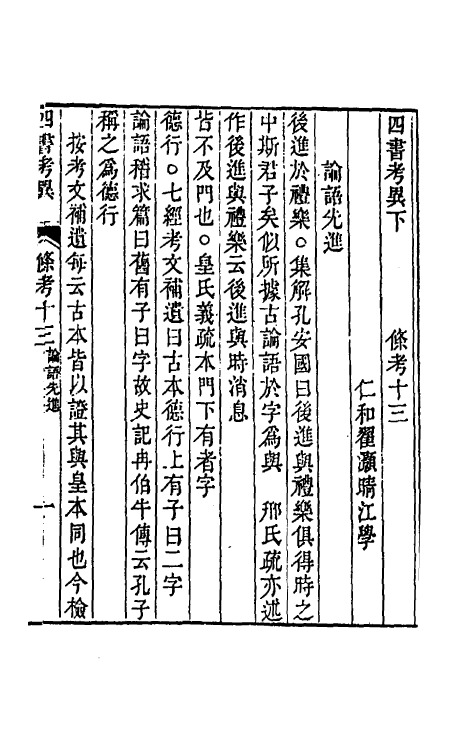 四書考異下　條考十三
仁和翟灝晴江學
論語先進
後進於禮樂○集解孔安國曰後進與禮樂俱得時之
中斯君子矣似所據古論語於字爲與　邢氏疏亦述
作後進與禮樂云後進與時消息
皆不及門也○皇氏義疏本門下有者字
德行○七經考文補遺曰古本德行上有子曰二字
論語稽求篇曰舊有子曰字故史記冉伯牛傳云孔子
稱之爲德行
按考文補遺每云古本皆以證其與皇本同也今檢
四書考異　條考十三　論語先進　一